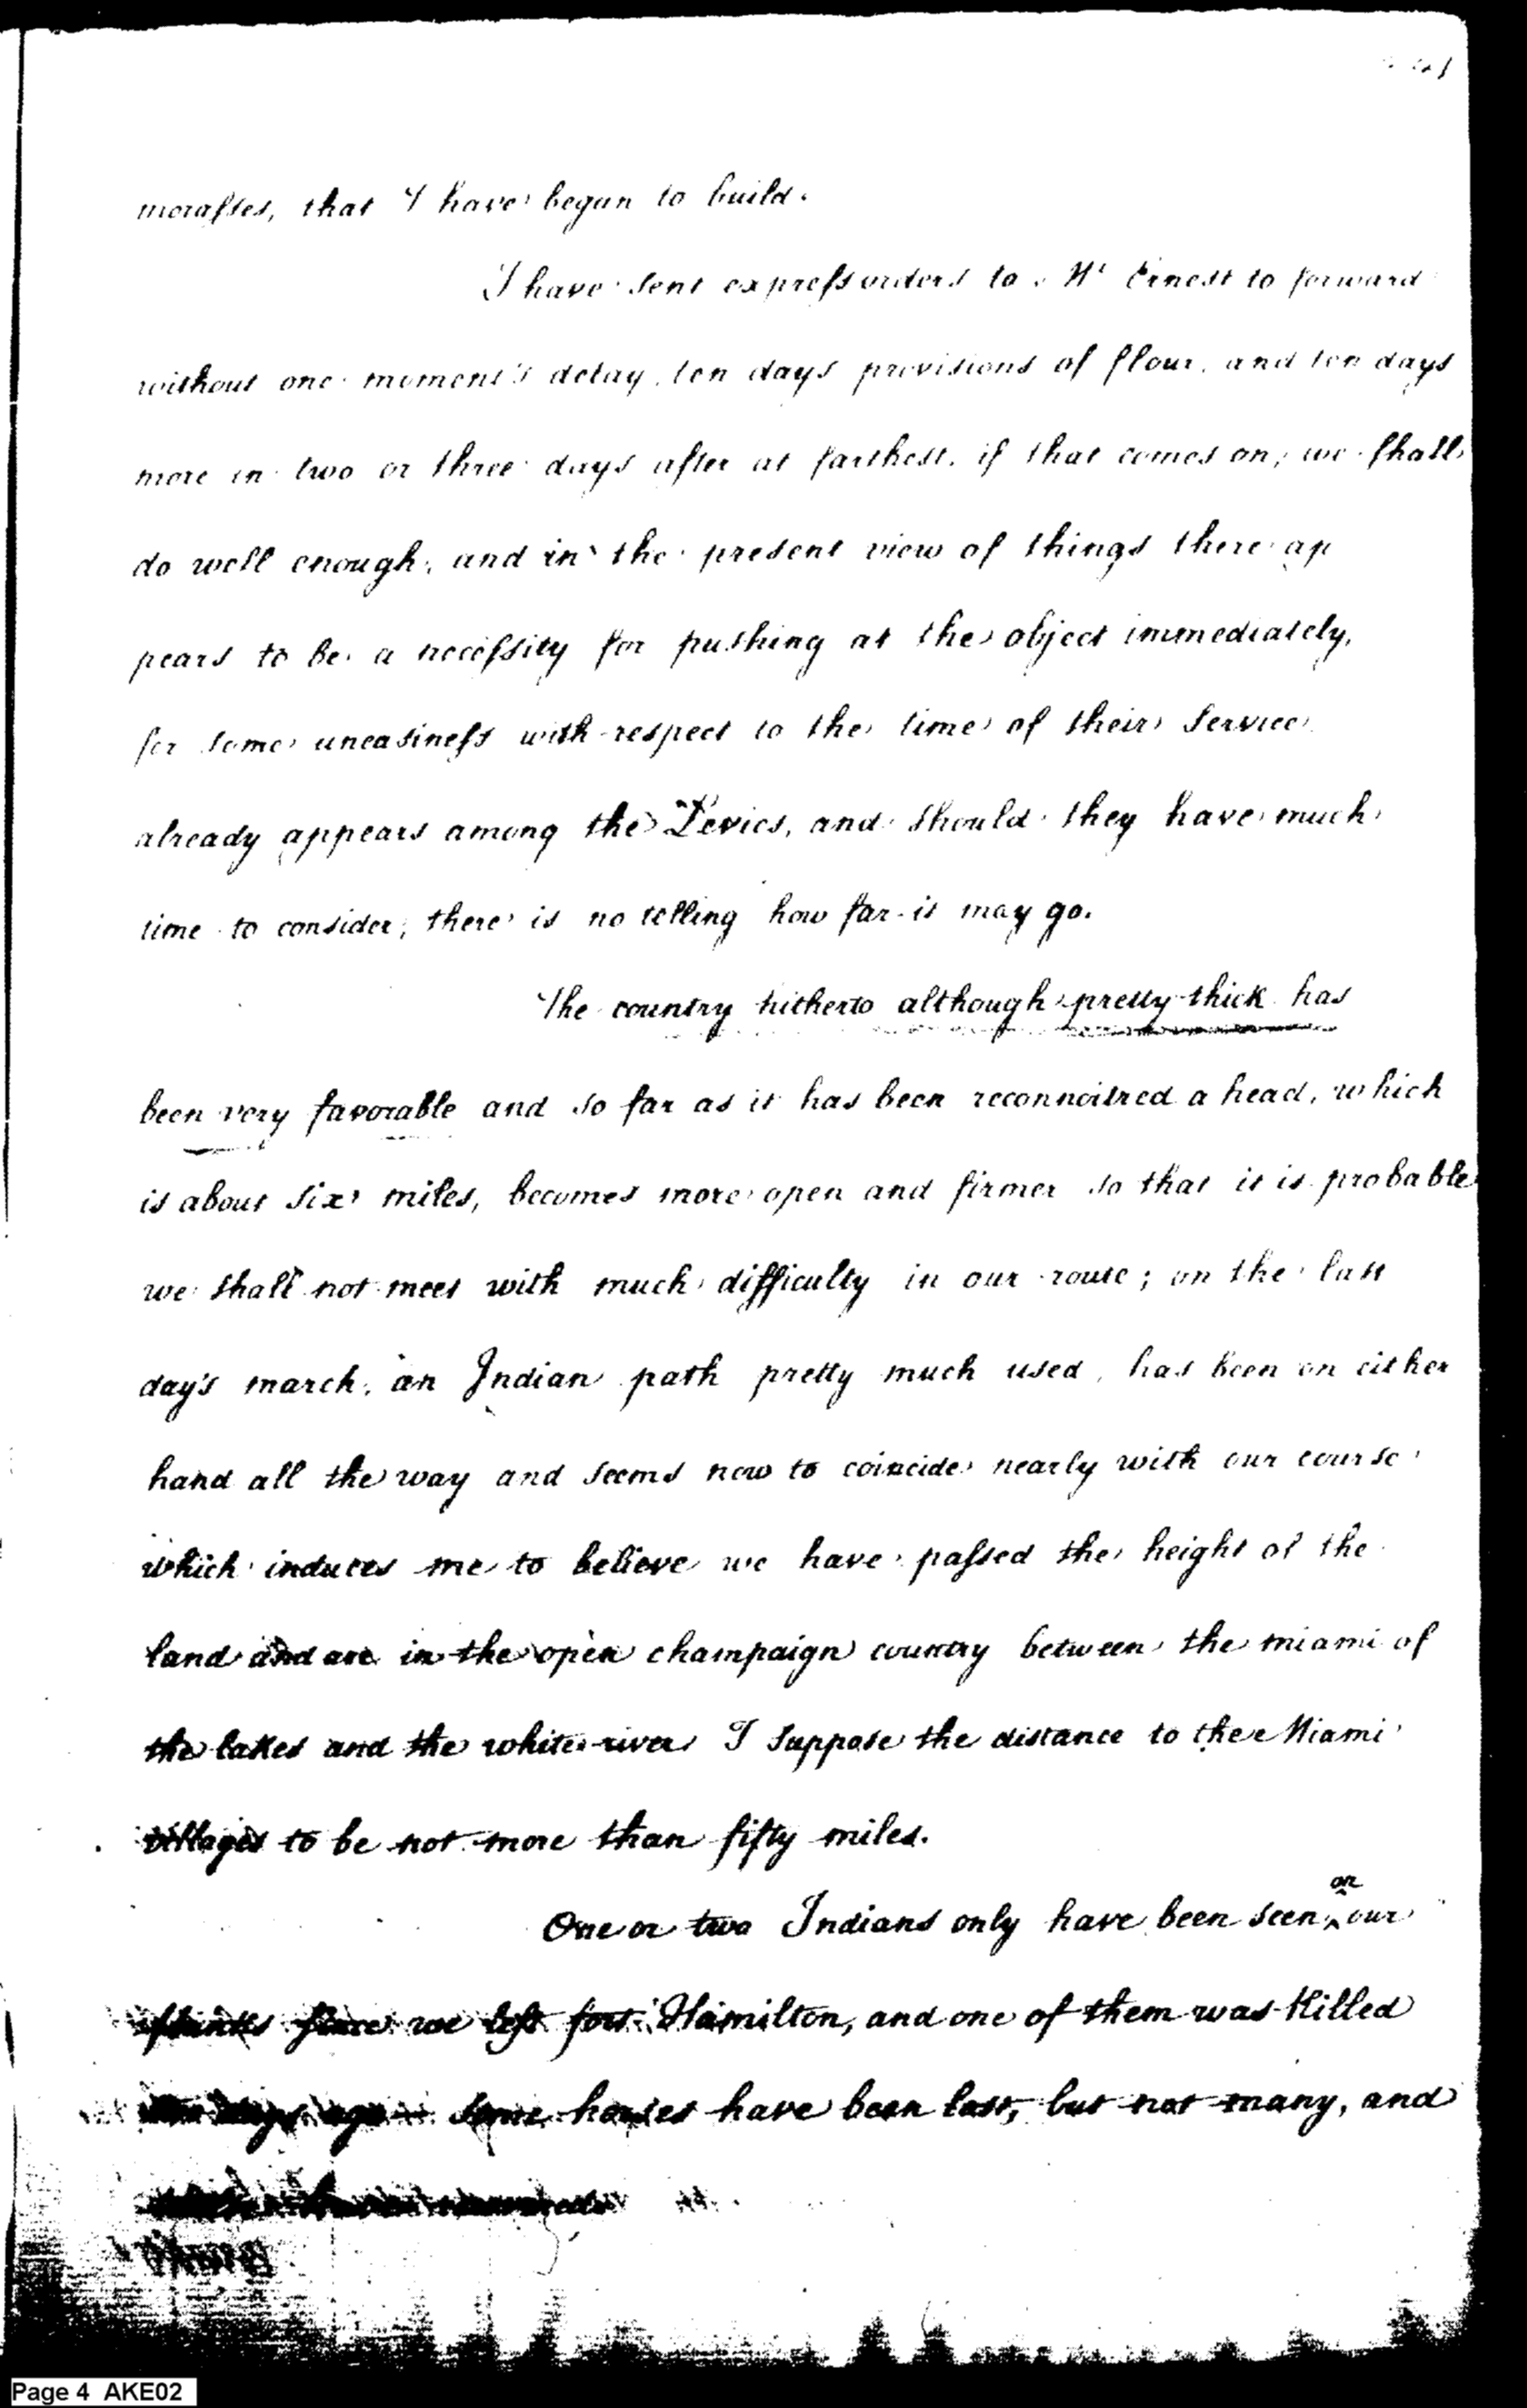 morasses, that I have begun to build.
I have sent express orders to Mr Ernest to forward
without one moment's delay, ten days provisions of flour, and ten days
more in two or three days after at farthest. if that comes on, we shall
do well enough, and in the present view of things there ap
pears to be a necessity for pushing at the object immediately,
for some uneasiness with respect to the time of their service
already appears among the Levies, and should they have much
time to consider, there is no telling how far it may go.
The country hitherto although pretty thick has
been very favorable and so far as it has been reconnoitred a head, which
is about six miles, becomes more open and firmer so that it is probable
we shall not meet with much difficulty in our route; on the last
day's march, an Indian path pretty much used, has been on either
hand all the way and seems now to coincide nearly with our course
which induces me to believe we have passed the height of the
land and are in the open champaign country between the miami of
the lakes and the white river I suppose the distance to the Miami
villages to be not more than fifty miles.
One or two Indians only have been seen on our
flanks since we left fort Hamilton, and one of them was killed
days ago some horses have been lost, but not many, and
Page 4 AKE02